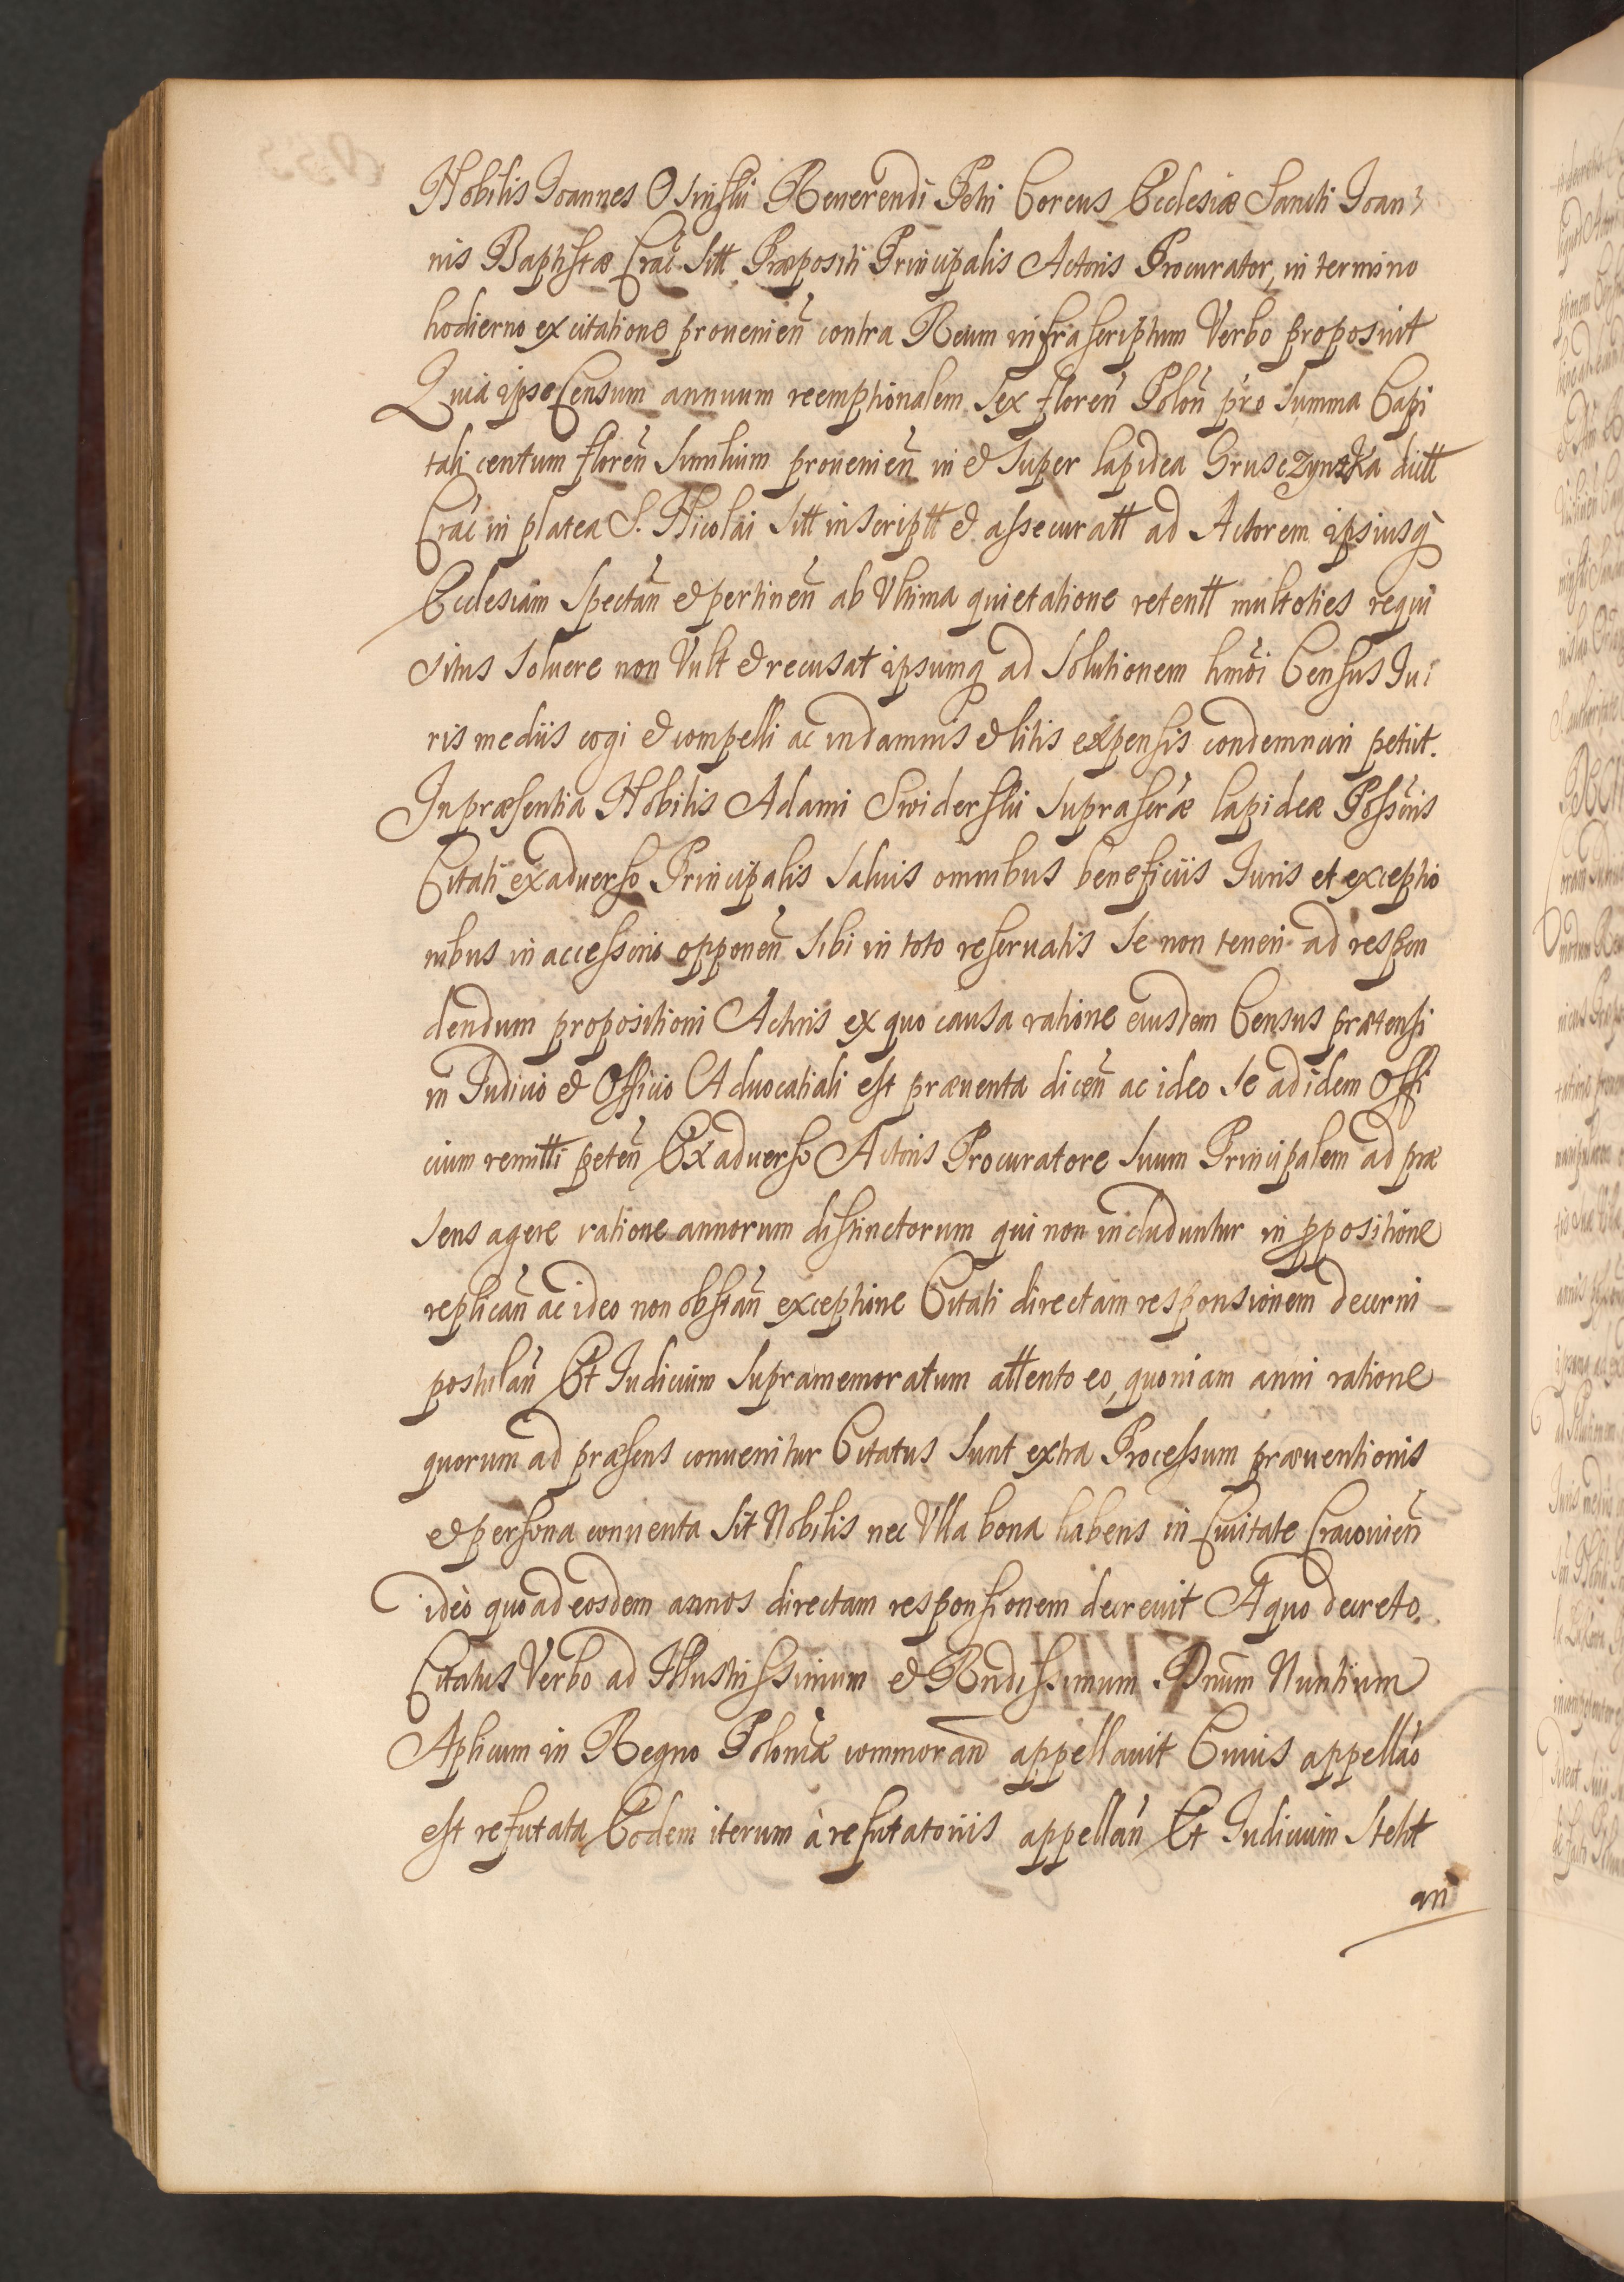 Nobilis Joannes Osinski Reuerendi Petri Coreus Ecclesiæ Sancti Joan
nis Baptistæ Crac̃ sitt Præpositi Principalis Actoris Procurator, in termino
hodierno ex citatione prouenien̄ contra Reum infrascriptum Verbo proposuit
Quia ipse Censum annuum reemptionalem sex floren̄ Polon̄ pro summa Capi
tali centum floren̄ similium prouenien̄ in & super lapidea Grusczynska dictt
Crac̃ in platea S. Nicolai sitt inscriptt & assecuratt ad Actorem ipsiusq̃
Ecclesiam spectan̄ & pertinen̄ ab Vltima quietatione retentt multoties requi
situs soluere non Vult & recusat ipsumq̃ ad solutionem hmõi Census Ju
ris mediis cogi & compelli ac in damnis & litis expensis condemnari petiit.
In præsentia Nobilis Adami Swiderski suprascr̃æ lapideæ Possẽris
Citati ex aduerso Principalis saluis omnibus beneficiis Juris et exceptio
nibus in accessorio opponen̄ sibi in toto reseruatis se non teneri ad respon
dendum propositioni Actoris ex quo causa ratione eiusdem Census prætensi
in Judicio & Officio Aduocatiali est præuenta dicen̄ ac ideo se ad idem Offi
cium remitti peten̄ Ex aduerso Actoris Procuratore suum Principalem ad præ
sens agere ratione annorum distinctorum qui non includuntur in ꝓpositione
replican̄ ac ideo non obstan̄ exceptione Citati directam responsionem decerni
postulan̄ Et Judicium supramemoratum attento eo, quoniam anni ratione
quorum ad præsens conuenitur Citatus sunt extra Processum præuentionis
& persona conuenta sit Nobilis nec Vlla bona habens in Ciuitate Cracouien̄
ideò quoad eosdem annos directam responsionem decreuit A quo decreto
Citatus Verbo ad Illustrissimum & Rndissimum Dnūm Nuntium
Aplicum in Regno Poloniæ commoran̄ appellauit Cuius appellaõ
est refutata Eodem iterum à refutatoriis appellan̄ Et Judicium stetit
in